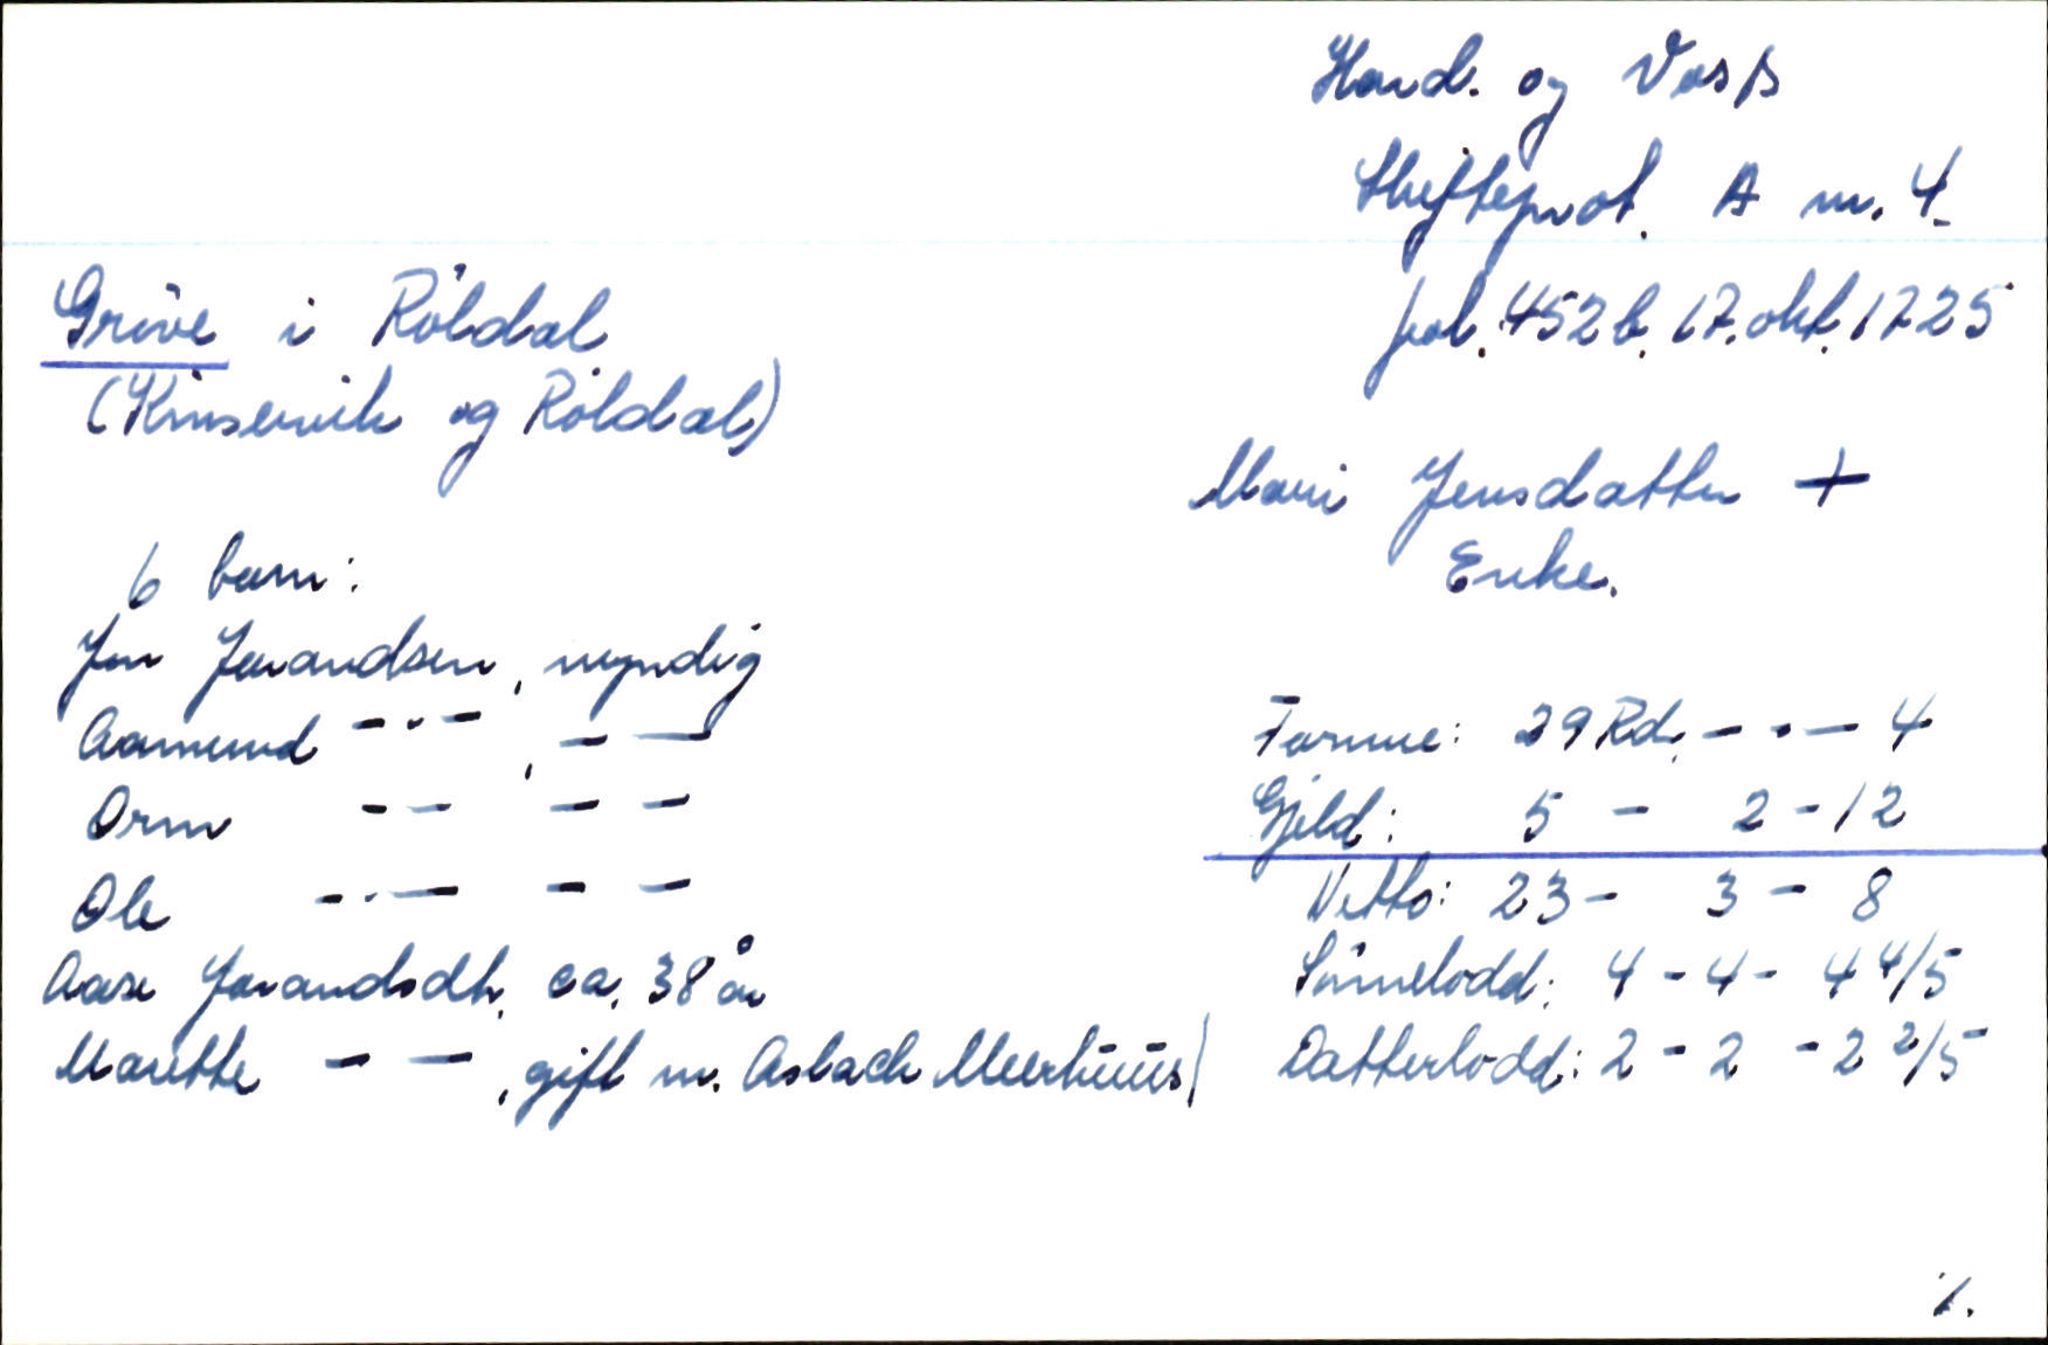 Hard. og Voss
Skifteprot. A nr. 4.
fol. 452b. 17. okt. 1725
Grøve i Røldal
(Kinservik og Røldal)
Mari Jensdatter +
Enke.
6 barn:
Jon Jorandsen, myndig
Aamund - " - , - -
Orm - - - -
Ole - " - - -
Aase Jorandsdtr. ca. 38 år
Maritte - - , gift m. Aslach Meerhuus/
Formue: 29 Rd. - " - 4
Gjeld: 5 - 2 - 12
Netto: 23 - 3 - 8
Sønnelodd: 4 - 4 - 4 4/5
Datterlodd: 2 - 2 - 2 2/5